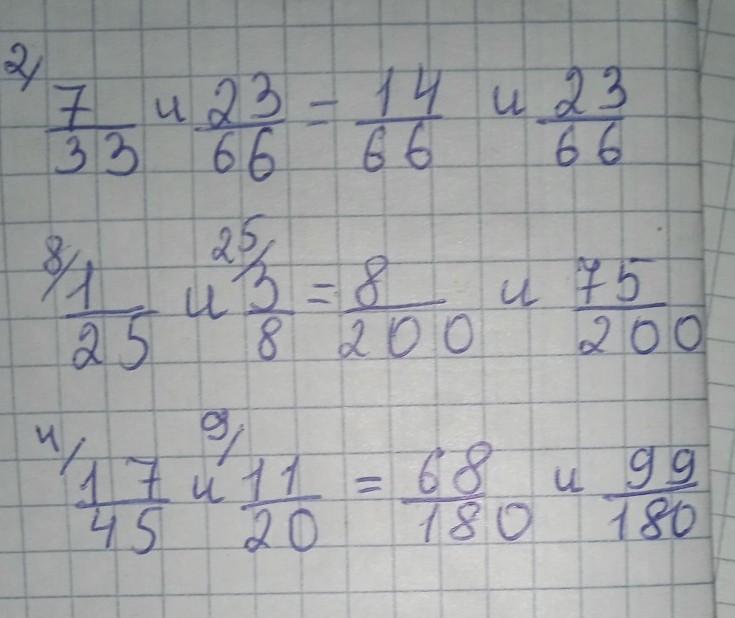 2/
7/33 и 23/66 = 14/66 и 23/66
8/ 25/
1/25 и 3/8 = 8/200 и 75/200
4/ 9/
17/45 и 11/20 = 68/180 и 99/180